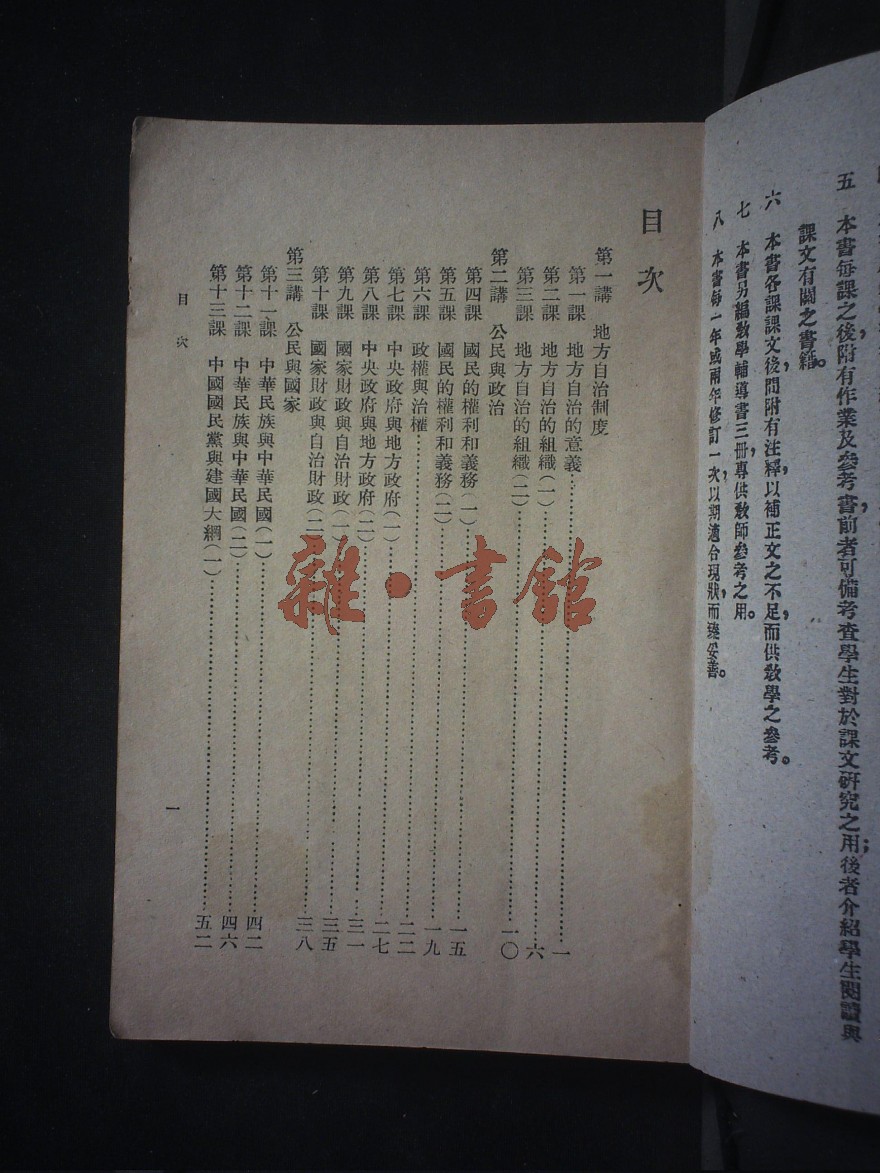 五　本書每課之後，附有作業及參考書，前者可備考查學生對於課文研究之用；後者介紹學生閱讀與
課文有關之書籍。
六　本書各課課文後，間附有注釋，以補正文之不足，而供教學之參考。
七　本書另編教學輔導書三冊，專供教師參考之用。
八　本書每一年或兩年修訂一次，以期適合現狀，而臻妥善。
目次
第一講　地方自治制度
第一課　地方自治的意義……一
第二課　地方自治的組織(一)……六
第三課　地方自治的組織(二)……一〇
第二講　公民與政治
第四課　國民的權利和義務(一)……一五
第五課　國民的權利和義務(二)……一九
第六課　政權與治權……二二
第七課　中央政府與地方政府(一)……二七
第八課　中央政府與地方政府(二)……三一
第九課　國家財政與自治財政(一)……三五
第十課　國家財政與自治財政(二)……三八
第三講　公民與國家
第十一課　中華民族與中華民國(一)……四二
第十二課　中華民族與中華民國(二)……四六
第十三課　中國國民黨與建國大綱(一)……五二
目次
一
雜·書館